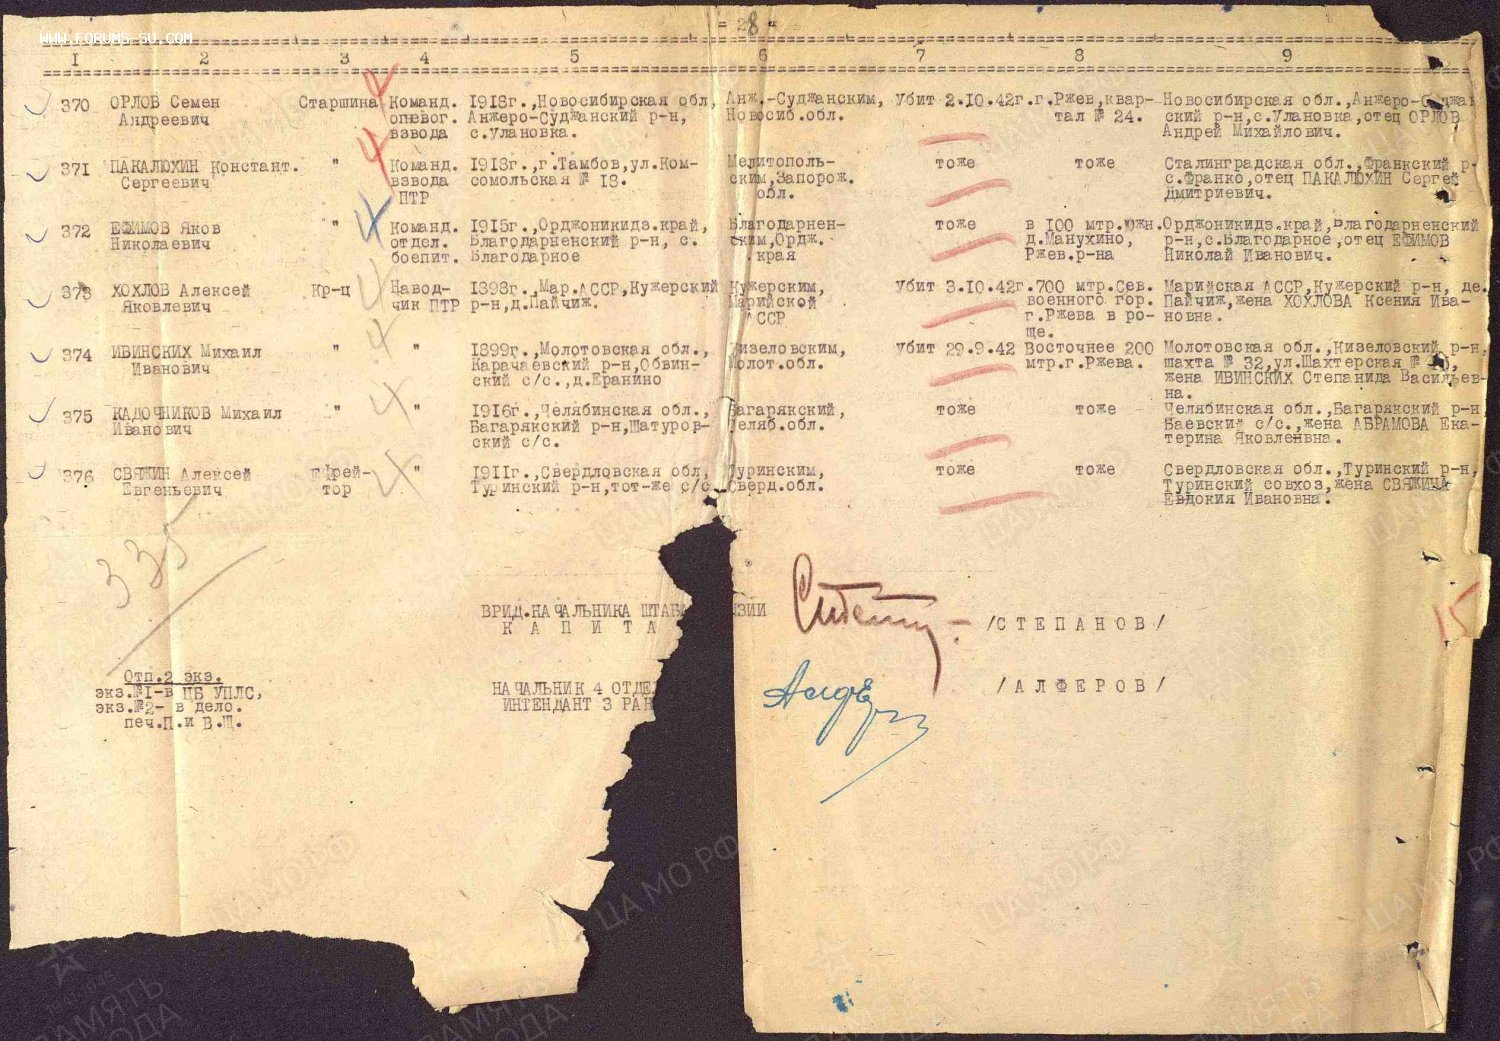 WWW.FORUMS-SU.COM
= 28 =
I 2 3 4 5 6 7 8 9
370 ОРЛОВ Семен Старшина Команд. 1918г.,Новосибирская обл, Анж.-Суджанским, Убит 2.10.42г. г.Ржев,квар- Новосибирская обл.,Анжеро-Суджан
Андреевич огневог. Анжеро-Суджанский р-н, Новосиб.обл. тал № 24. ский р-н,с.Улановка,отец ОРЛОВ
взвода с.Улановка. Андрей Михайлович.
371 ПАКАЛЮХИН Констант. " Команд. 1918г.,г.Тамбов,ул.Ком- Мелитополь- тоже тоже Сталинградская обл.,Франкский р-
Сергеевич взвода сомольская № 18. ским,Запорож. с.Франко,отец ПАКАЛЮХИН Сергей
ПТР обл. Дмитриевич.
372 ЕФИМОВ Яков " Команд. 1915г.,Орджоникидз.край, Благодарнен- тоже в 100 мтр.южн. Орджоникидз.край,Благодарненский
Николаевич отдел. Благодарненский р-н, с. ским,Ордж. д.Манухино, р-н,с.Благодарное,отец ЕФИМОВ
боепит. Благодарное края Ржев.р-на Николай Иванович.
373 ХОХЛОВ Алексей Кр-ц Навод- 1898г.,Мар.АССР,Кужерский Кужерским, Убит 3.10.42г. 700 мтр.Сев. Марийская АССР,Кужерский р-н, де.
Яковлевич чик ПТР р-н,д.Пайчиж. Марийской военного гор. Пайчиж,жена ХОХЛОВА Ксения Ива-
АССР г.Ржева в ро- новна.
ще.
374 ИВИНСКИХ Михаил " " 1899г.,Молотовская обл., Кизеловским, Убит 29.9.42 Восточнее 200 Молотовская обл.,Кизеловский р-н,
Иванович Карачаевский р-н,Обвин- Молот.обл. мтр.г.Ржева. шахта № 32,ул.Шахтерская №
ский с/с.,д.Еранино жена ИВИНСКИХ Степанида Васильев-
на.
375 КАДОЧНИКОВ Михаил " " 1916г.,Челябинская обл., Багарякский, тоже тоже Челябинская обл.,Багарякский р-н,
Иванович Багарякский р-н,Шатуров- Челяб.обл. Баевский с/с.,жена АБРАМОВА Ека-
ский с/с. терина Яковлевна.
376 СВЯЖИН Алексей Ефрей- " 1911г.,Свердловская обл, Туринским, тоже тоже Свердловская обл.,Туринский р-н,
Евгеньевич тор Туринский р-н,тот-же с/с Сверд.обл. Туринский совхоз,жена СВЯЖИНА
Евдокия Ивановна.
335
ВРИД.НАЧАЛЬНИКА ШТАБА ИЗИИ
К А П И Т А /СТЕПАНОВ/
15
Отп.2 экз.
экз.№1-в ЦБ УПЛС, НАЧАЛЬНИК 4 ОТДЕ /АЛФЕРОВ/
экз.№2- в дело. ИНТЕНДАНТ 3 РАН
печ.П.и В.Щ.